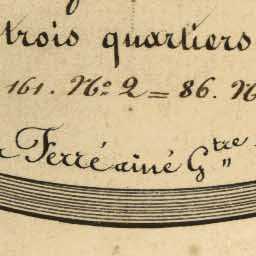 trois quartiers
161. Nº 2 = 86. N
r Ferré aîné G.tre